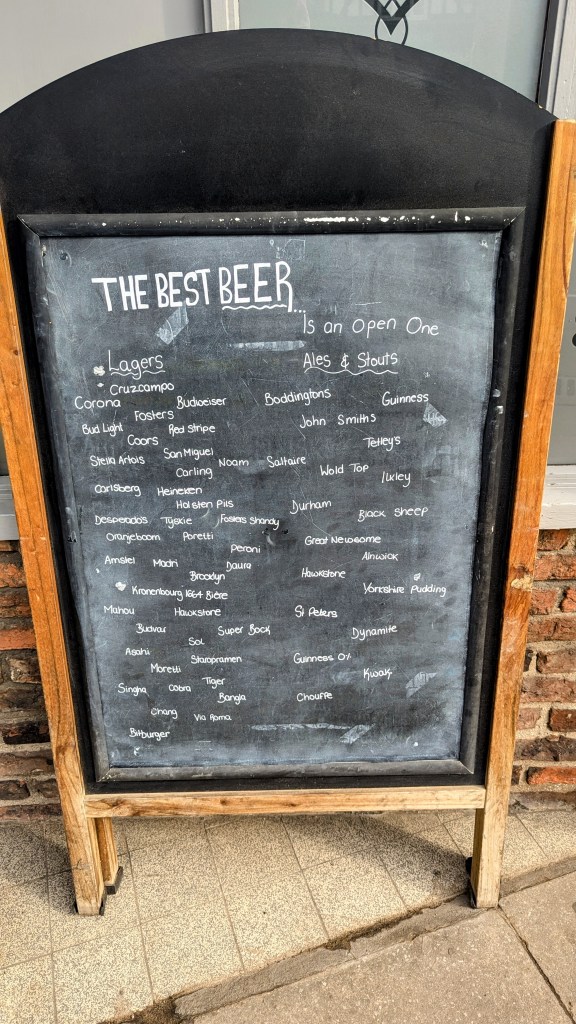 THE BEST BEER...
Is an Open One
Lagers
Ales & Stouts
Cruzcampo
Corona Budweiser Boddingtons Guinness
Fosters
Bud Light Red Stripe John Smiths
Coors Tetley's
San Miguel
Stella Artois Noam Saltaire
Carling Wold Top Ilkley
Carlsberg Heineken
Holsten Pils Durham
Desperados Tyskie Fosters Shandy Black Sheep
Oranjeboom Poretti Great Newsome
Peroni
Amstel Madri Daura Alnwick
Brooklyn Hawkstone
Kronenbourg 1664 Bière Yorkshire Pudding
Mahou Hawkstone St Peters
Budvar Super Bock Dynamite
Sol
Asahi Staropramen Guinness 0%
Moretti Kwak
Tiger
Singha Cobra Bangla Chouffe
Chang Via Roma
Bitburger